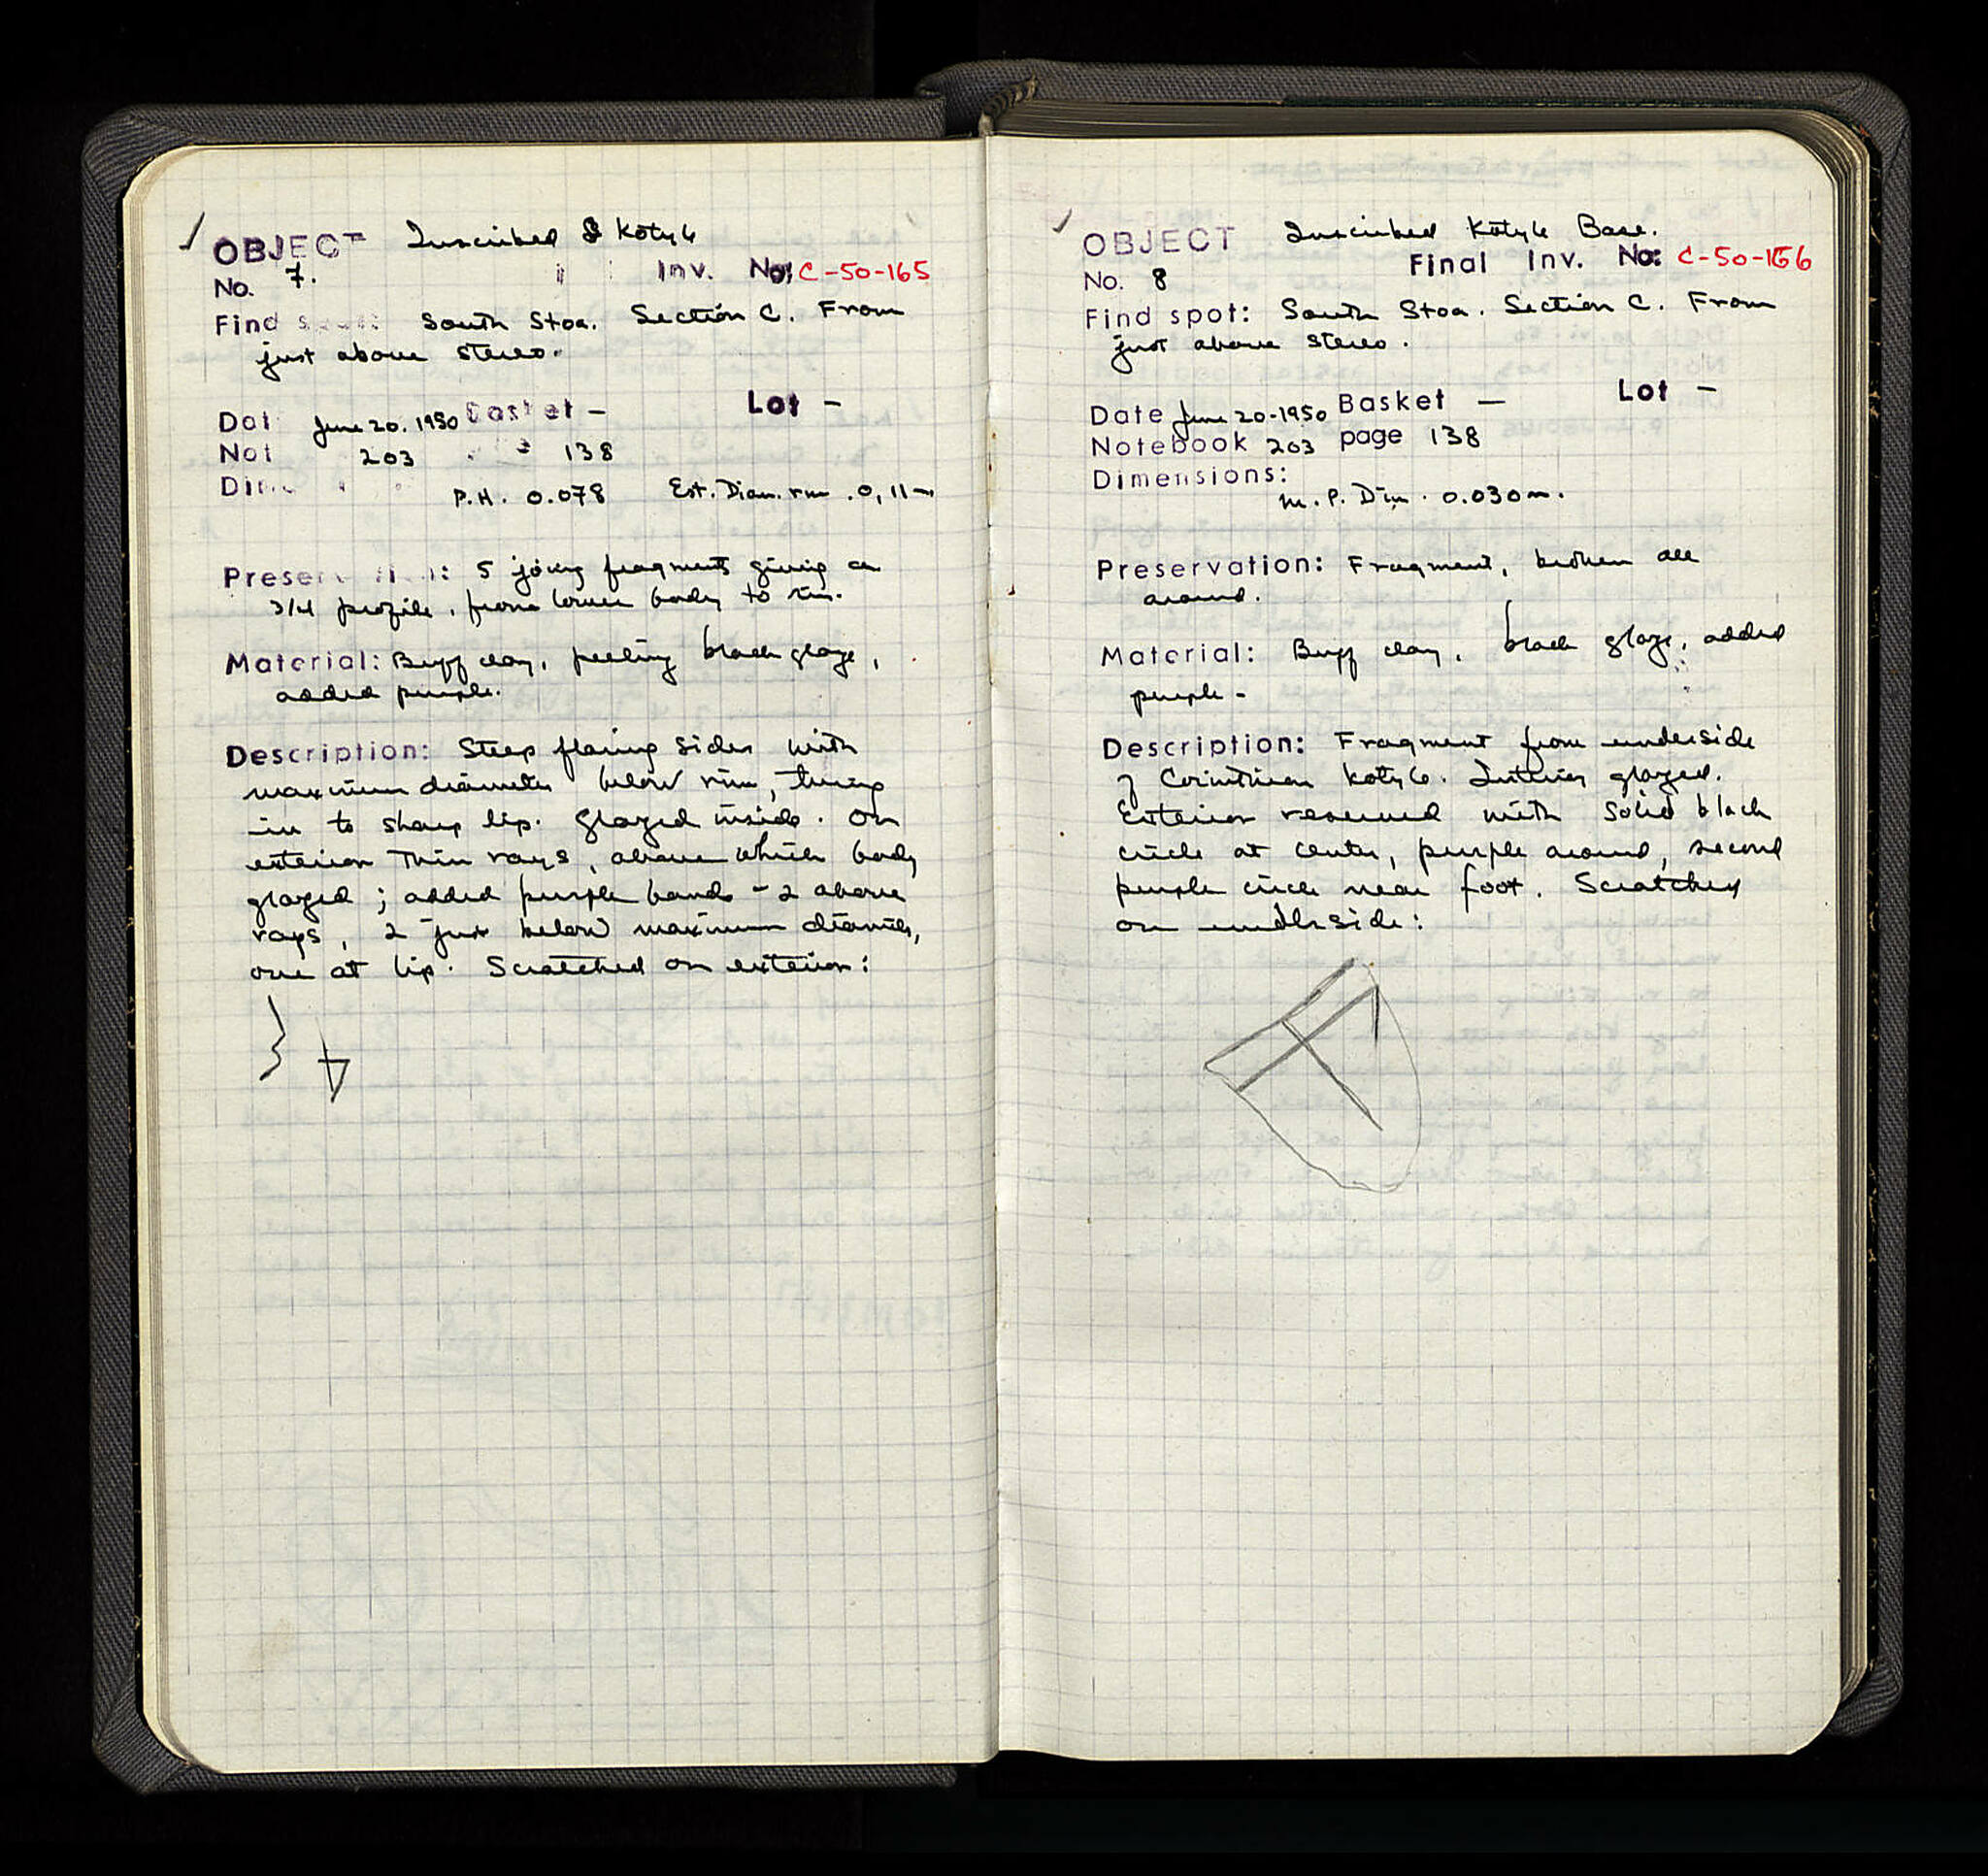 OBJECT Inscribed Kotyle
No. 7. Inv. No: C-50-165
Find South Stoa. Section C. From
just above stereo.
Dat June 20. 1950 Basket - Lot -
Not 203 138
Di P.H. 0.078 Est. Diam. rim .0,11m
Preser : 5 joining fragments giving a
3/4 profile, from lower body to rim.
Material: Buff clay, peeling black glaze,
added purple.
Description: Steep flaring sides with
maximum diameter below rim, turning
in to sharp lip. Glazed inside. On
exterior thin rays, above which body
glazed; added purple bands - 2 above
rays, 2 just below maximum diameter,
one at lip. Scratched on exterior:
OBJECT Inscribed Kotyle Base.
Final Inv. No: C-50-166
No. 8
Find spot: South Stoa. Section C. From
just above stereo.
Date June 20-1950 Basket — Lot -
Notebook 203 page 138
Dimensions:
M. P. Dim. 0.030m.
Preservation: Fragment, broken all
around.
Material: Buff clay, black glaze, added
purple -
Description: Fragment from underside
of Corinthian Kotyle. Interior glazed.
Exterior reserved with solid black
circle at center, purple around, second
purple circle near foot. Scratched
on underside: